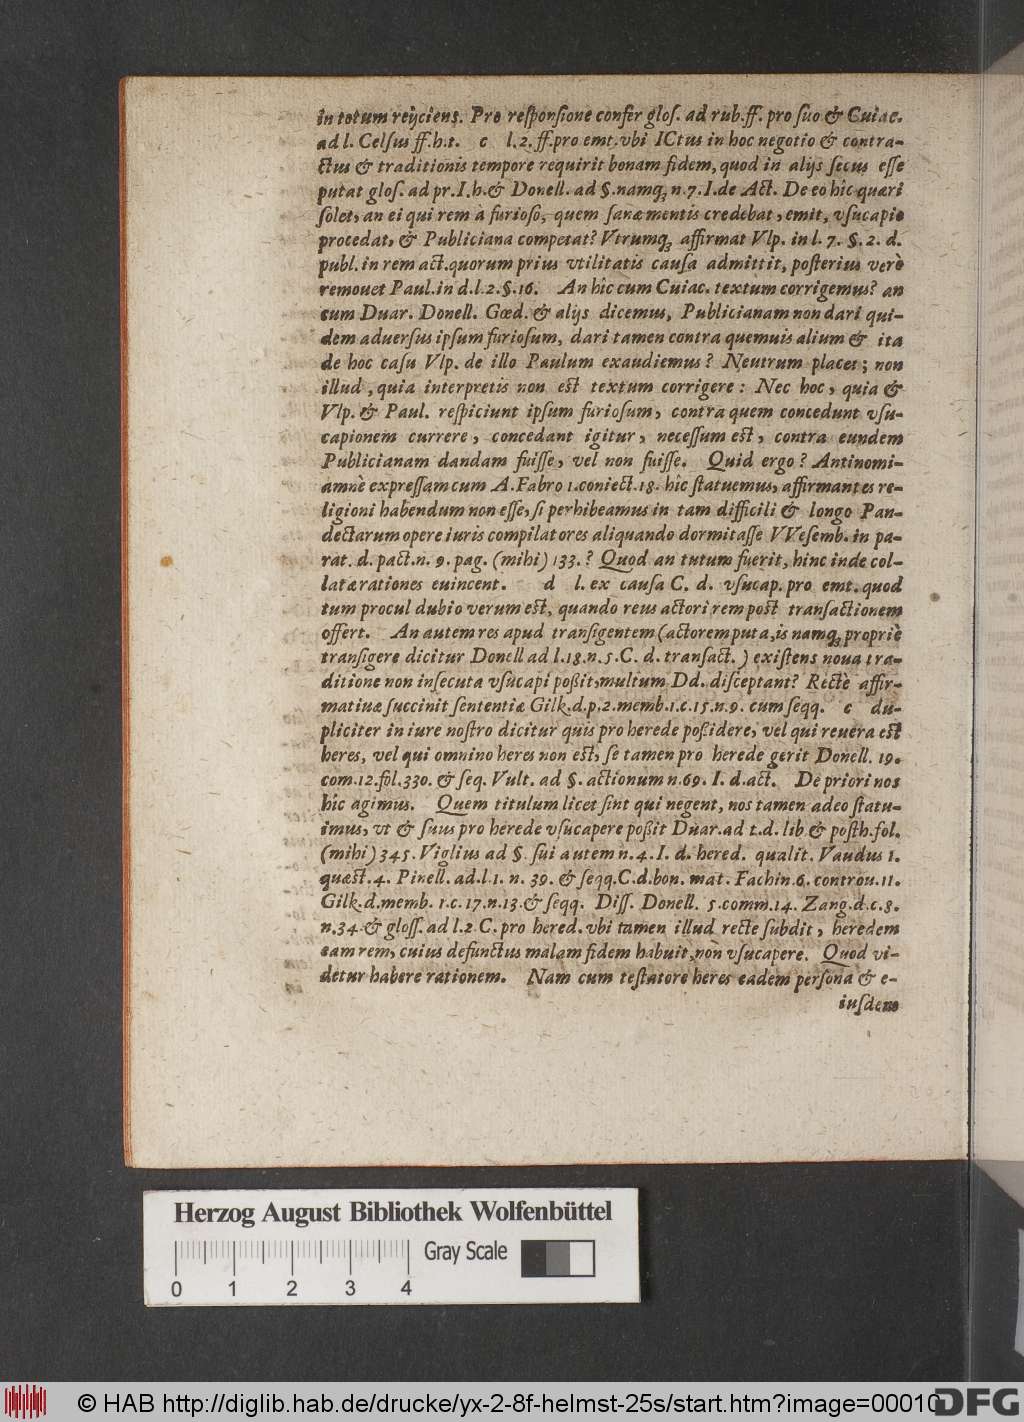 in totum reijciens. Pro responsione confer glos. ad rub. ff. pro suo & Cuiac.
ad l. Celsus ff. h.t. c l. 2. ff. pro emt. vbi ICtus in hoc negotio & contra-
ctus & traditionis tempore requirit bonam fidem, quod in alijs secus esse
putat glos. ad pr. I. h. & Donell. ad §. namq; n. 7. I. de Act. De eo hic quæri
solet, an ei qui rem à furioso, quem sanæ mentis credebat, emit, vsucapio
procedat, & Publiciana competat? Vtrumq; affirmat Vlp. in l. 7. §. 2. d.
publ. in rem act. quorum prius vtilitatis causa admittit, posterius verè
remouet Paul. in d. l. 2. §. 16. An hic cum Cuiac. textum corrigemus? an
cum Duar. Donell. Gœd. & alijs dicemus, Publicianam non dari qui-
dem aduersus ipsum furiosum, dari tamen contra quemuis alium & ita
de hoc casu Vlp. de illo Paulum exaudiemus? Neutrum placet; non
illud, quia interpretis non est textum corrigere: Nec hoc, quia &
Vlp. & Paul. respiciunt ipsum furiosum, contra quem concedunt vsu-
capionem currere, concedant igitur, necessum est, contra eundem
Publicianam dandam fuisse, vel non fuisse. Quid ergo? Antinomi-
amnè expressam cum A. Fabro 1. coniect. 18. hic statuemus, affirmantes re-
ligioni habendum non esse, si perhibeamus in tam difficili & longo Pan-
dectarum opere iuris compilatores aliquando dormitasse VVesemb. in pa-
rat. d. pact. n. 9. pag. (mihi) 133.? Quod an tutum fuerit, hinc inde col-
latæ rationes euincent. d l. ex causa C. d. vsucap. pro emt. quod
tum procul dubio verum est, quando reus actori rem post transactionem
offert. An autem res apud transigentem (actorem puta, is namq; propriè
transigere dicitur Donell ad l. 18. n. 5. C. d. transact.) existens noua tra-
ditione non insecuta vsucapi poßit, multum Dd. disceptant? Rectè affir-
matiuæ succinit sententiæ Gilk. d. p. 2. memb. 1. c. 15. n. 9. cum seqq. c du-
pliciter in iure nostro dicitur quis pro herede poßidere, vel qui reuera est
heres, vel qui omnino heres non est, se tamen pro herede gerit Donell. 19.
com. 12. fol. 330. & seq. Vult. ad §. actionum n. 69. I. d. act. De priori nos
hic agimus. Quem titulum licet sint qui negent, nos tamen adeo statu-
imus, vt & suus pro herede vsucapere poßit Duar. ad t. d. lib & posth. fol.
(mihi) 345. Viglius ad §. sui autem n. 4. I. d. hered. qualit. Vaudus 1.
quæst. 4. Pinell. ad. l. 1. n. 39. & seqq. C. d. bon. mat. Fachin. 6. controu. 11.
Gilk. d. memb. 1. c. 17. n. 13. & seqq. Diss. Donell. 5. comm. 14. Zang. d. c. 8.
n. 34. & gloss. ad l. 2 C. pro hered. vbi tamen illud recte subdit, heredem
eam rem, cuius defunctus malam fidem habuit, non vsucapere. Quod vi-
detur habere rationem. Nam cum testatore heres eadem persona & e-
iusdem
Herzog August Bibliothek Wolfenbüttel
Gray Scale
0 1 2 3 4
© HAB http://diglib.hab.de/drucke/yx-2-8f-helmst-25s/start.htm?image=00010
DFG